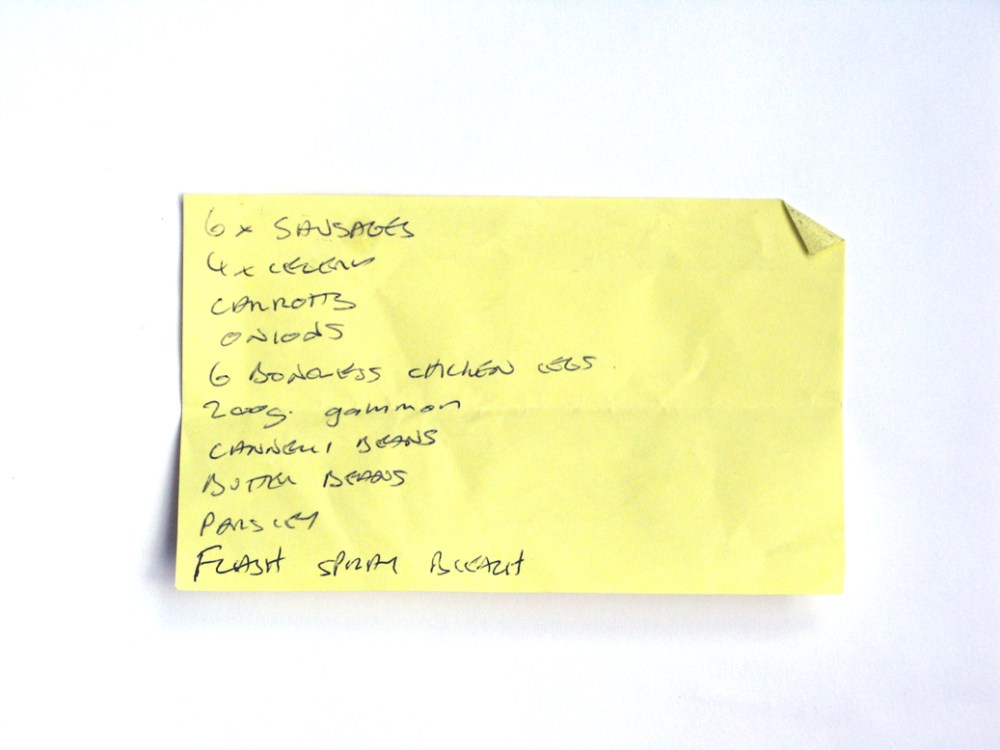 6 x SAUSAGES
4 x CELERY
CARROTTS
ONIONS
6 BONELESS CHICKEN LEGS
200g. gammon
CANNELLI BEANS
BUTTER BEANS
PARSLEY
FLASH SPRAY BLEACH